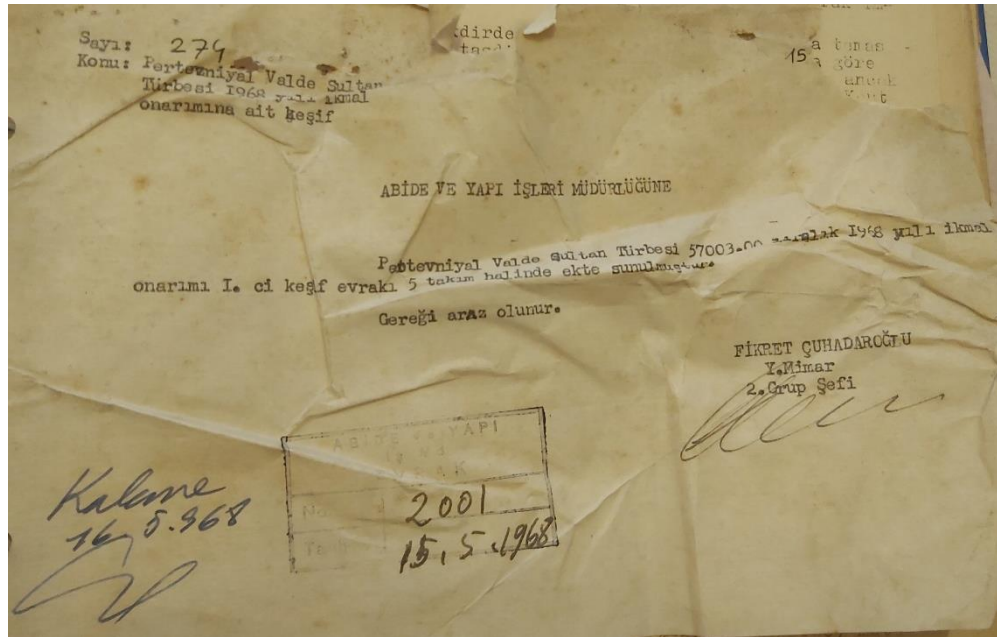 Sayı: 274
Konu: Pertevniyal Valde Sultan
Türbesi 1968 yılı ikmal
onarımına ait keşif
dirde
15
a göre
ancak
ABİDE VE YAPI İŞLERİ MÜDÜRLÜĞÜNE
Pertevniyal Valde Sultan Türbesi 57003.00 liralık 1968 yılı ikmal
onarımı I. ci keşif evrakı 5 takım halinde ekte sunulmuştur.
Gereği araz olunur.
FİKRET ÇUHADAROĞLU
Y.Mimar
2.Grup Şefi
ABİDE VE YAPI
No 2001
15.5.1968
Kaleme
16.5.968